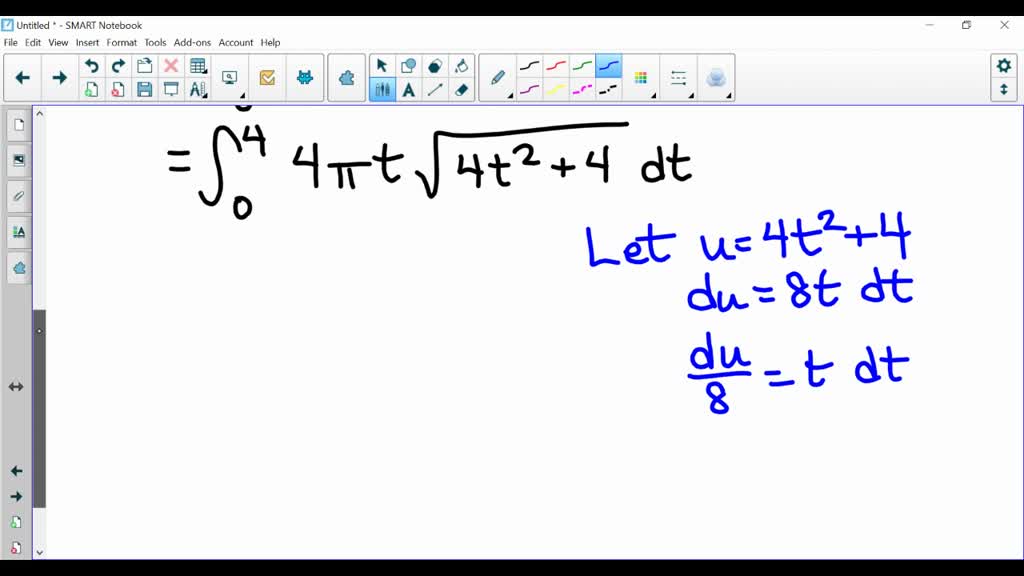 Untitled * - SMART Notebook
File Edit View Insert Format Tools Add-ons Account Help
= ∫₀⁴ 4πt √(4t²+4) dt
Let u=4t²+4
du=8t dt
du/8 = t dt